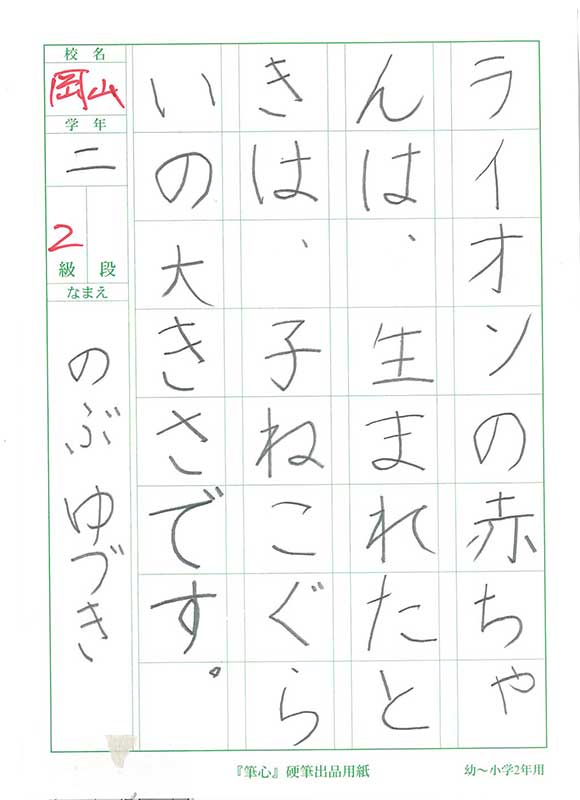 ライオンの赤ちゃ
んは、生まれたと
きは、子ねこぐら
いの大きさです。
校名
岡山
学年
二
2
級 段
なまえ
のぶ ゆづき
『筆心』硬筆出品用紙
幼～小学2年用